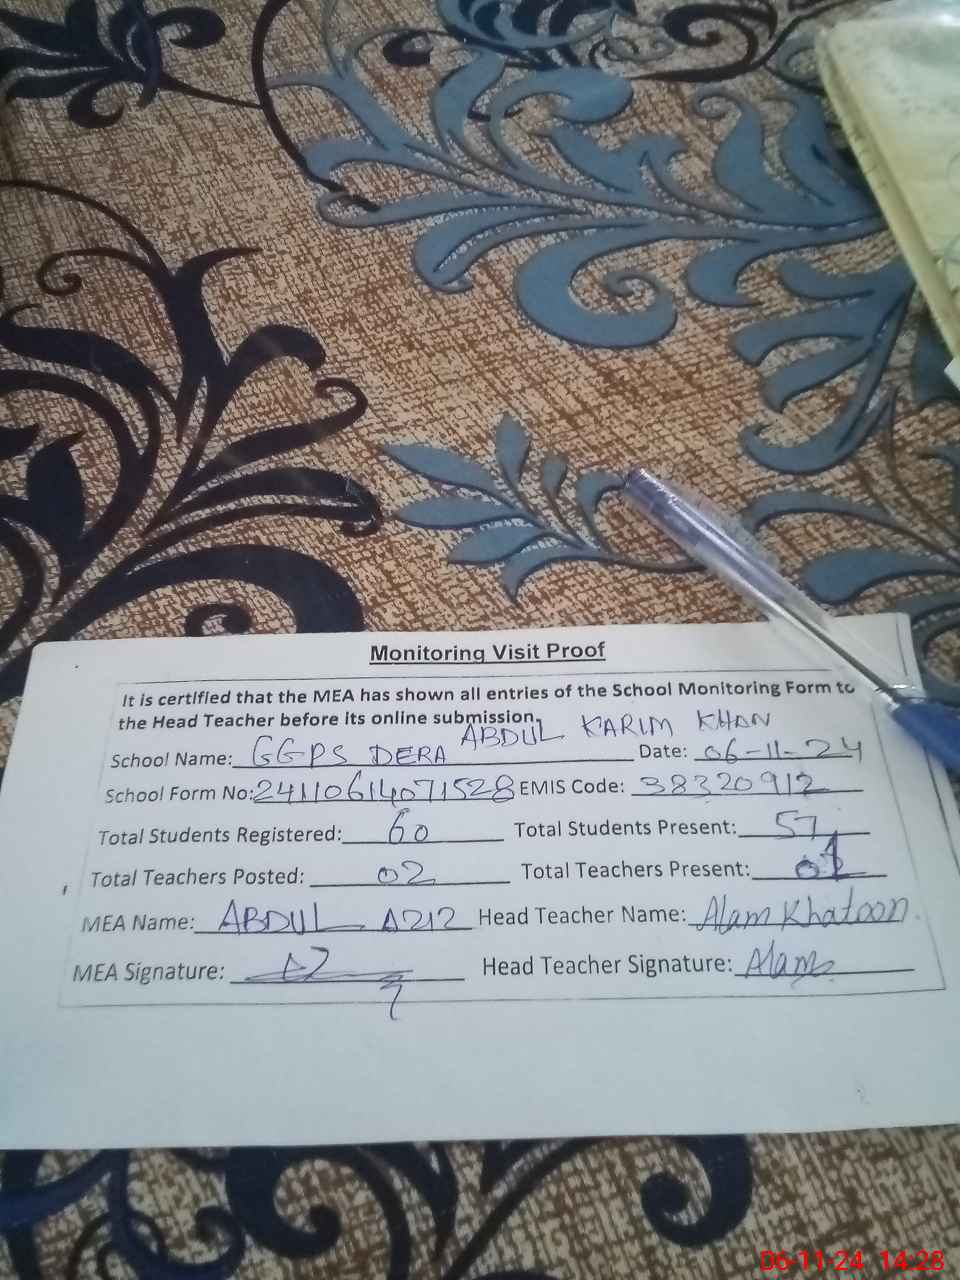 Monitoring Visit Proof
It is certified that the MEA has shown all entries of the School Monitoring Form to
the Head Teacher before its online submission.
School Name: GGPS DERA ABDUL KARIM KHAN Date: 06-11-24
School Form No: 24110614071528 EMIS Code: 38320912
Total Students Registered: 60 Total Students Present: 57
Total Teachers Posted: 02 Total Teachers Present:
MEA Name: ABDUL AZIZ Head Teacher Name: Alam Khatoon.
MEA Signature: Head Teacher Signature: Alam
06-11-24 14:28